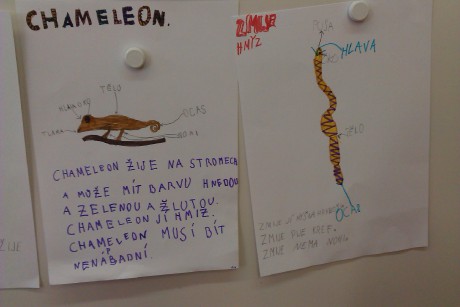 CHAMELEON.
TĚLO
OCAS
CHAMELEON ŽIJE NA STROMECH
A MOŽE MÍT BARVU HNEDOU
A ZELENOU A ŽLUTOU.
CHAMELEON JÍ HMIZ.
CHAMELEON MUSÍ BÍT
NENÁPADNÍ.
ZMIJE
HMIZ
HLAVA
OKO
TĚLO
OCAS
ZMIJE JÍ
ZMIJE
ZMIJE NEMA NOHI.
ŽIJE